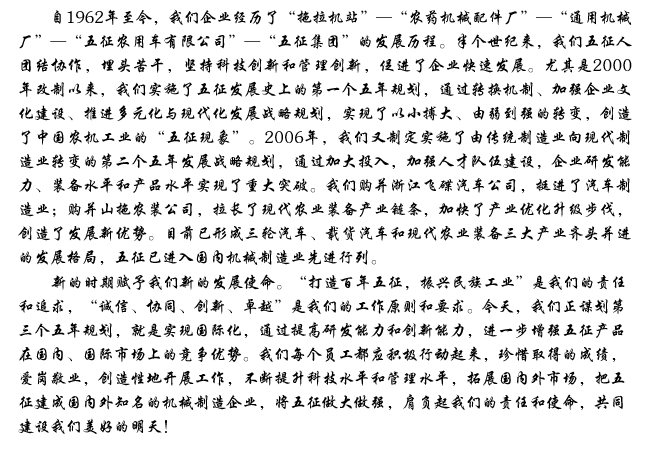 自1962年至今，我们企业经历了“拖拉机站”—“农药机械配件厂”—“通用机械
厂”—“五征农用车有限公司”—“五征集团”的发展历程。半个世纪来，我们五征人
团结协作，埋头苦干，坚持科技创新和管理创新，促进了企业快速发展。尤其是2000
年改制以来，我们实施了五征发展史上的第一个五年规划，通过转换机制、加强企业文
化建设、推进多元化与现代化发展战略规划，实现了以小搏大、由弱到强的转变，创造
了中国农机工业的“五征现象”。2006年，我们又制定实施了由传统制造业向现代制
造业转变的第二个五年发展战略规划，通过加大投入，加强人才队伍建设，企业研发能
力、装备水平和产品水平实现了重大突破。我们购并浙江飞碟汽车公司，挺进了汽车制
造业；购并山拖农装公司，拉长了现代农业装备产业链条，加快了产业优化升级步伐，
创造了发展新优势。目前已形成三轮汽车、载货汽车和现代农业装备三大产业齐头并进
的发展格局，五征已进入国内机械制造业先进行列。
新的时期赋予我们新的发展使命。“打造百年五征，振兴民族工业”是我们的责任
和追求，“诚信、协同、创新、卓越”是我们的工作原则和要求。今天，我们正谋划第
三个五年规划，就是实现国际化，通过提高研发能力和创新能力，进一步增强五征产品
在国内、国际市场上的竞争优势。我们每个员工都应积极行动起来，珍惜取得的成绩，
爱岗敬业，创造性地开展工作，不断提升科技水平和管理水平，拓展国内外市场，把五
征建成国内外知名的机械制造企业，将五征做大做强，肩负起我们的责任和使命，共同
建设我们美好的明天！